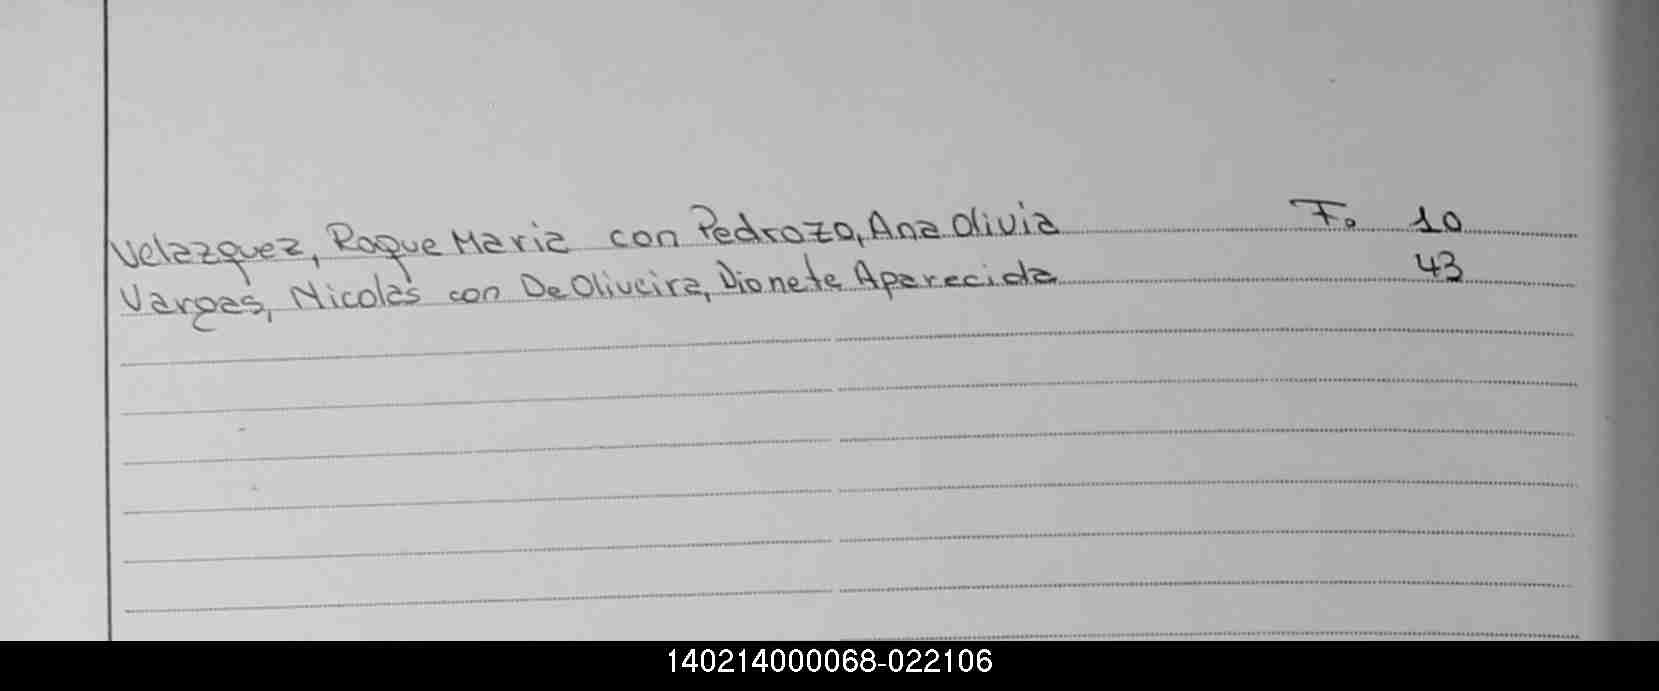 Velazquez, Roque Maria con Pedrozo, Ana Olivia F. 10
Vargas, Nicolás con De Oliveira, Dionete Aparecida 43
140214000068-022106